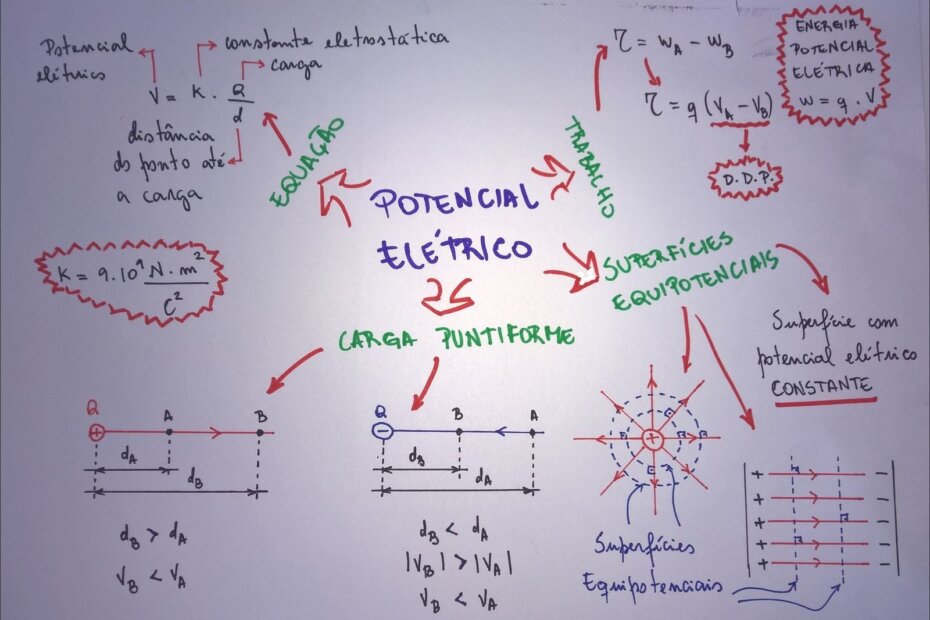 POTENCIAL
ELÉTRICO
EQUAÇÃO
Potencial
elétrico
constante eletrostática
carga
V = K . Q/d
distância
do ponto até
a carga
K = 9.10⁹ N.m²/C²
TRABALHO
τ = WA - WB
τ = q (VA - VB)
D.D.P.
ENERGIA
POTENCIAL
ELÉTRICA
W = q . V
SUPERFÍCIES
EQUIPOTENCIAIS
Superfície com
potencial elétrico
CONSTANTE
CARGA PUNTIFORME
Q A B
+
dA
dB
dB > dA
VB < VA
Q B A
−
dB
dA
dB < dA
|VB| > |VA|
VB < VA
+
Superfícies
Equipotenciais
+ −
+ −
+ −
+ −
+ −